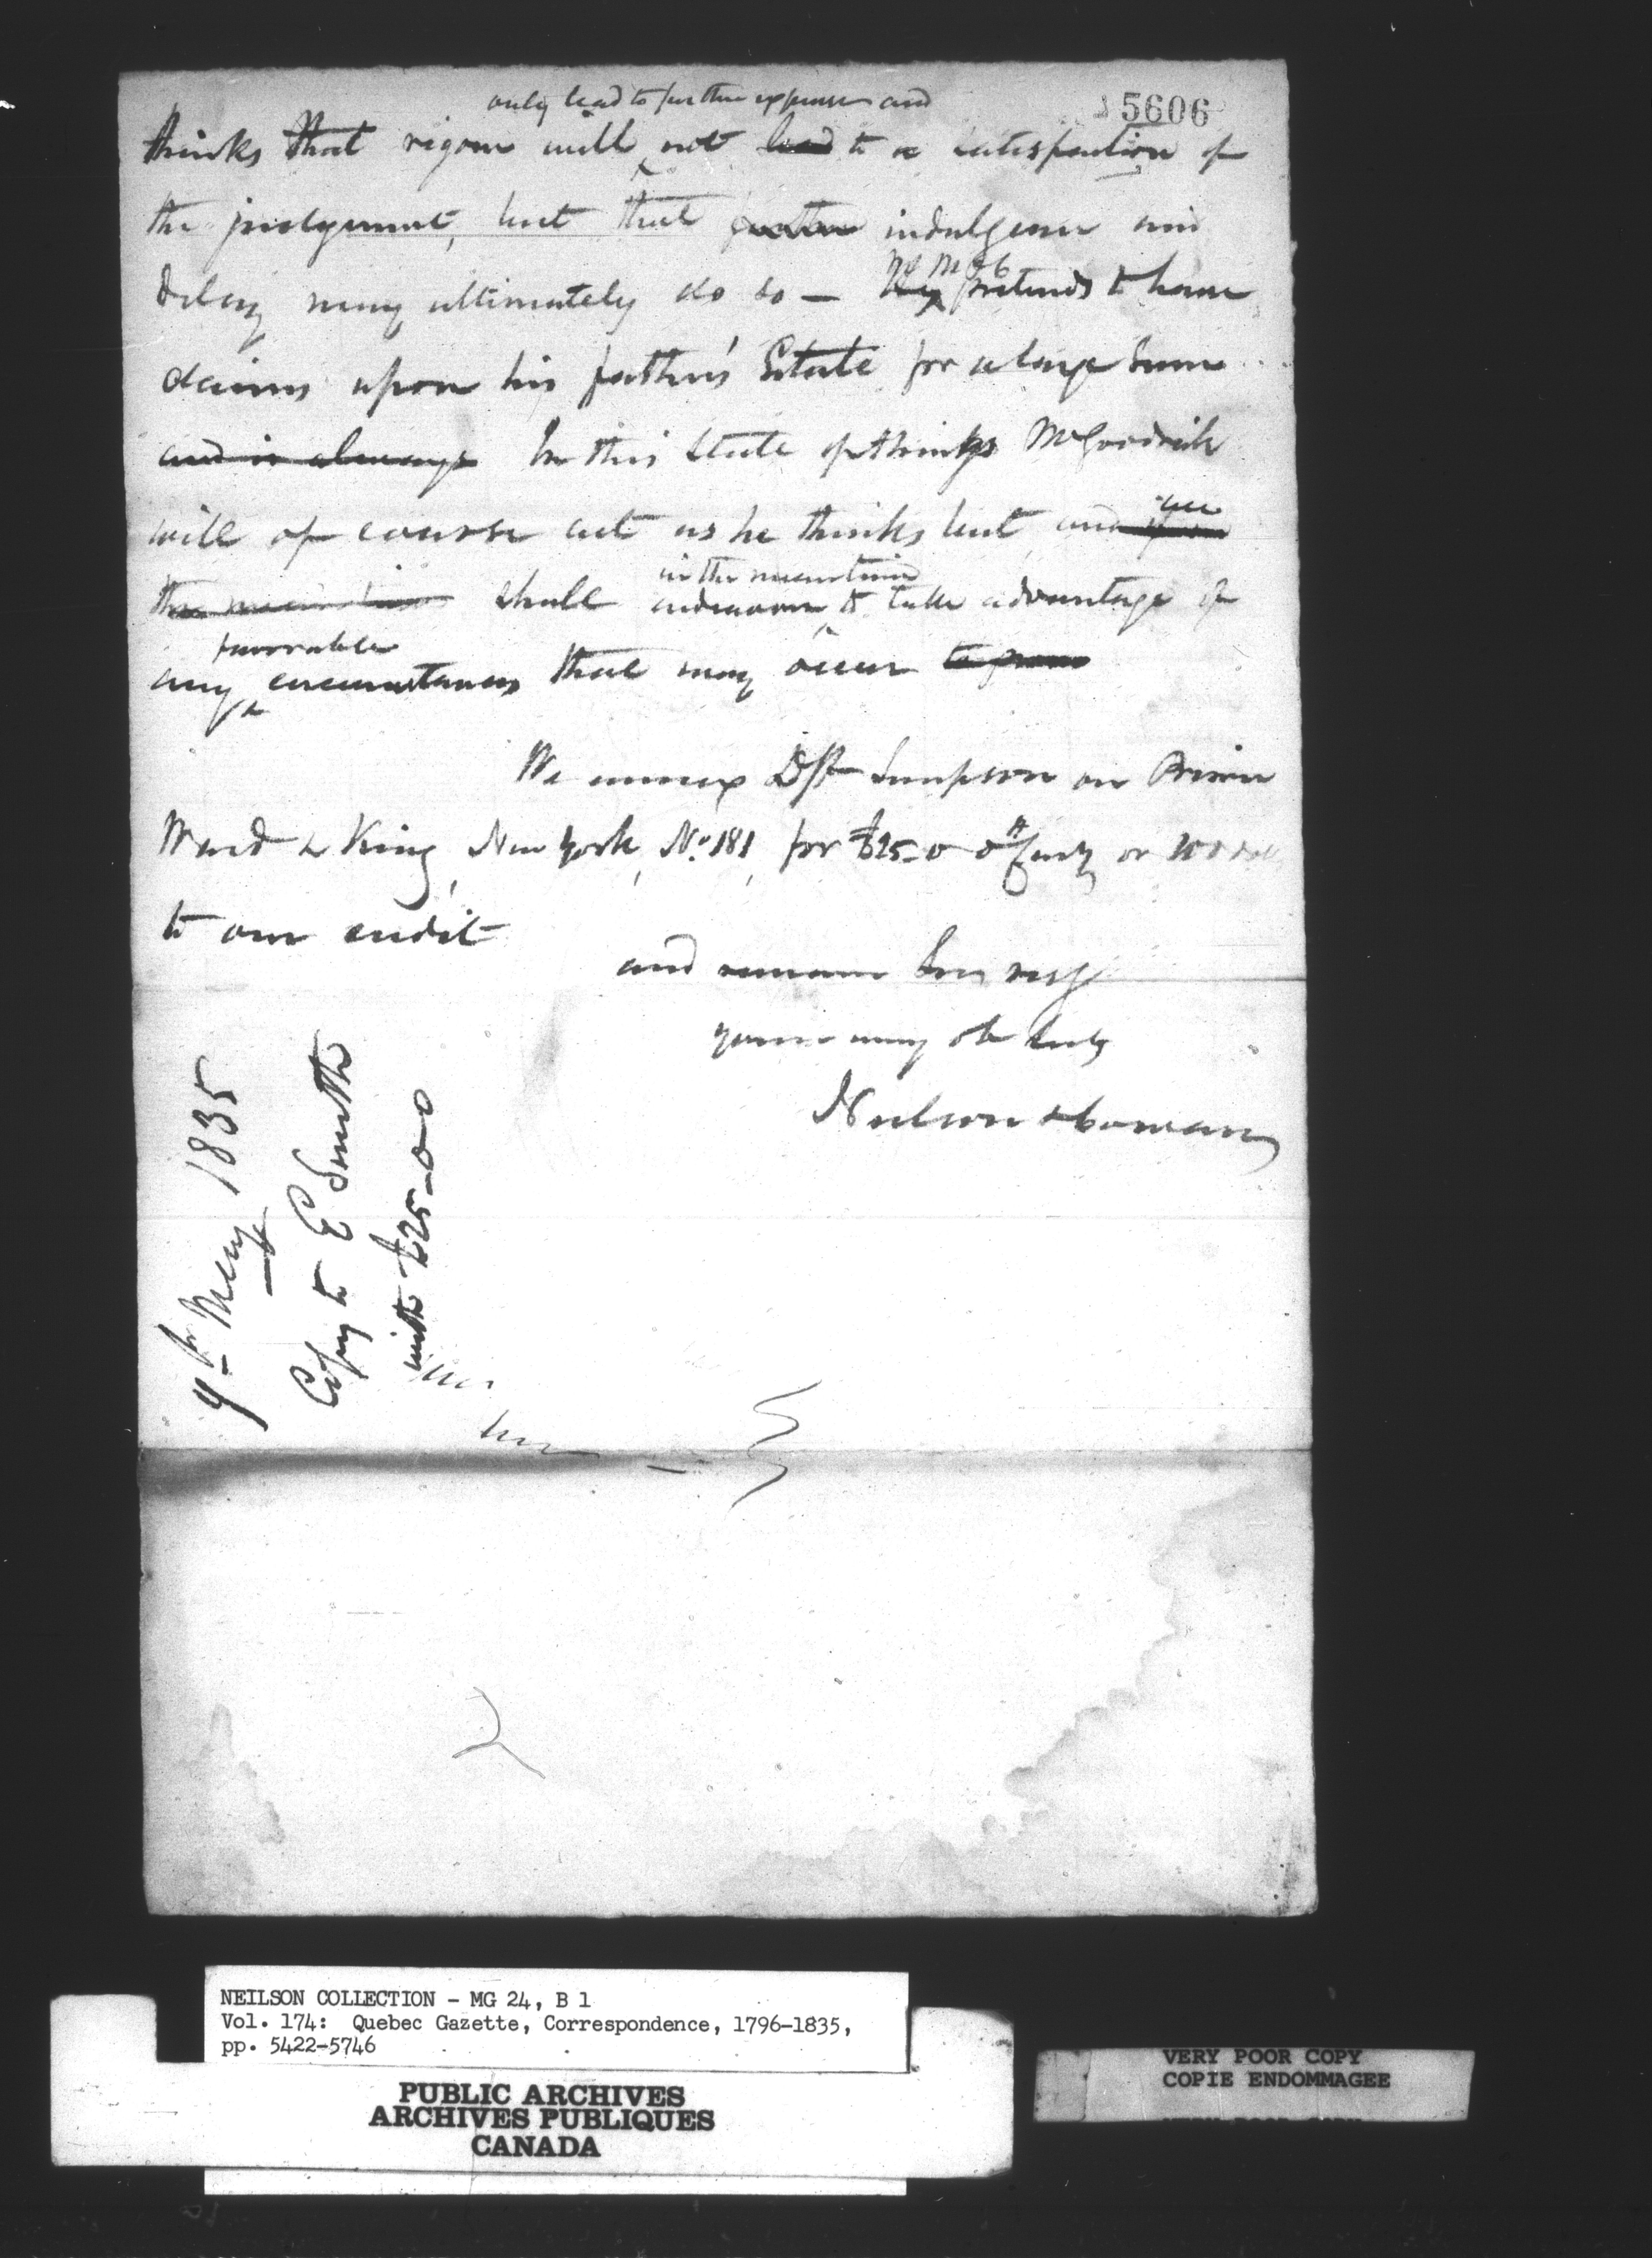 5606
only lead to further expense and
thinks that rigour will not lead to a satisfaction of
the judgement, but that further indulgence and
delay may ultimately do so — pretends to have
claims upon his father's Estate for a large sum
and is always In this state of things Mr Goodrich
will of course act as he thinks best and we
the meantime shall endeavour to take advantage of
in the meantime
favorable
any circumstances that may occur
We annex Dft Simpson on Prime
Ward & King, New York, No. 181, for £25-0-0 Hfx Curcy or 100
to our credit
and remain Sirs resy
your may ob Sts
Neilson & Cowan
9th May 1835
Copy to E Smith
with £25-0-0
NEILSON COLLECTION - MG 24, B 1
Vol. 174: Quebec Gazette, Correspondence, 1796-1835,
pp. 5422-5746
PUBLIC ARCHIVES
ARCHIVES PUBLIQUES
CANADA
VERY POOR COPY
COPIE ENDOMMAGEE